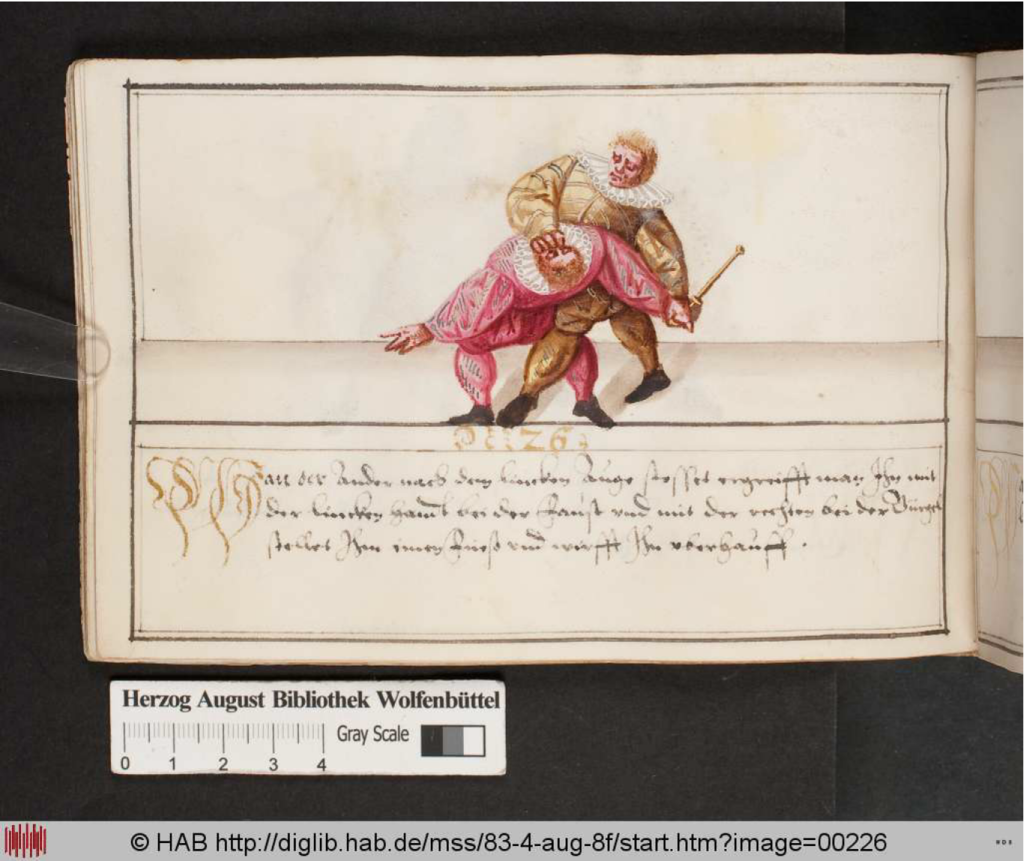 126
Wan der Ander nach dem lincken Auge stosset ergreifft man Ihn mit
der lincken handt bei der Faust vnd mit der rechten bei der Gurgel
stellet Ihm einen Fuess vnd wirfft Ihn vberhauff .
Herzog August Bibliothek Wolfenbüttel
Gray Scale
0 1 2 3 4
© HAB http://diglib.hab.de/mss/83-4-aug-8f/start.htm?image=00226